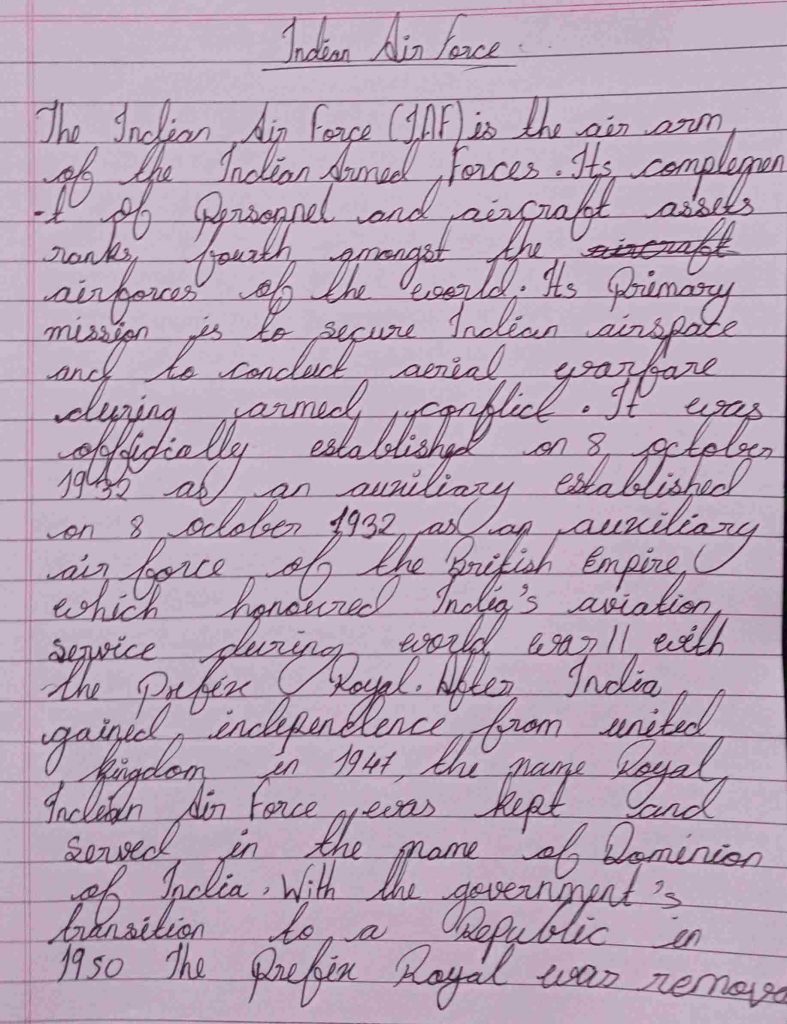 Indian Air Force
The Indian Air Force (IAF) is the air arm
of the Indian Armed Forces. Its complemen
-t of Personnel and aircraft assets
ranks fourth amongst the aircraft
airforces of the world. Its Primary
mission is to secure Indian airspace
and to conduct aerial warfare
during armed conflict. It was
officially established on 8 october
1932 as an auxiliary established
on 8 october 1932 as an auxiliary
air force of the British Empire
which honoured India's aviation
service during world war II with
the Prefix Royal. After India
gained independence from united
kingdom in 1947, the name Royal
Indian Air Force was kept and
served in the name of Dominion
of India. With the government's
transition to a Republic in
1950 The Prefix Royal was remove